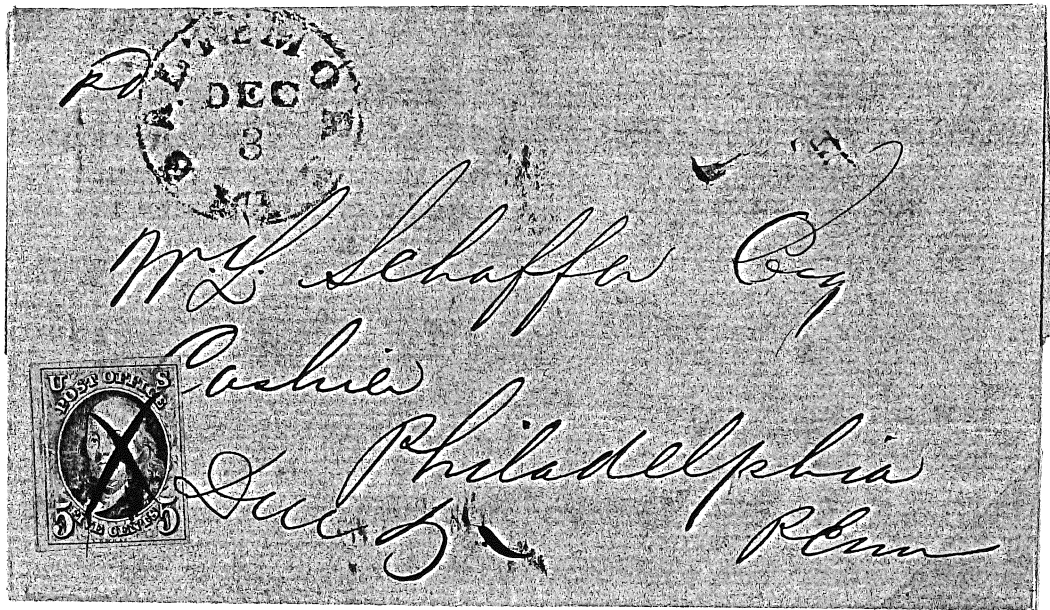 BALTIMORE
DEC
8
Wm. L. Schaffer Esq
Cashier
Philadelphia
Penn
Due 5
U S
POST OFFICE
FIVE CENTS
5 5